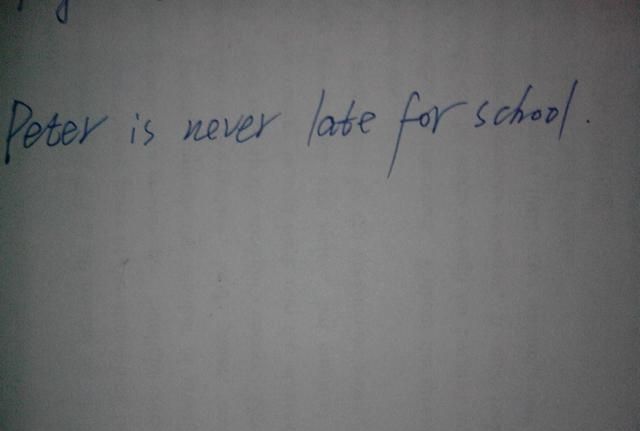 Peter is never late for school.